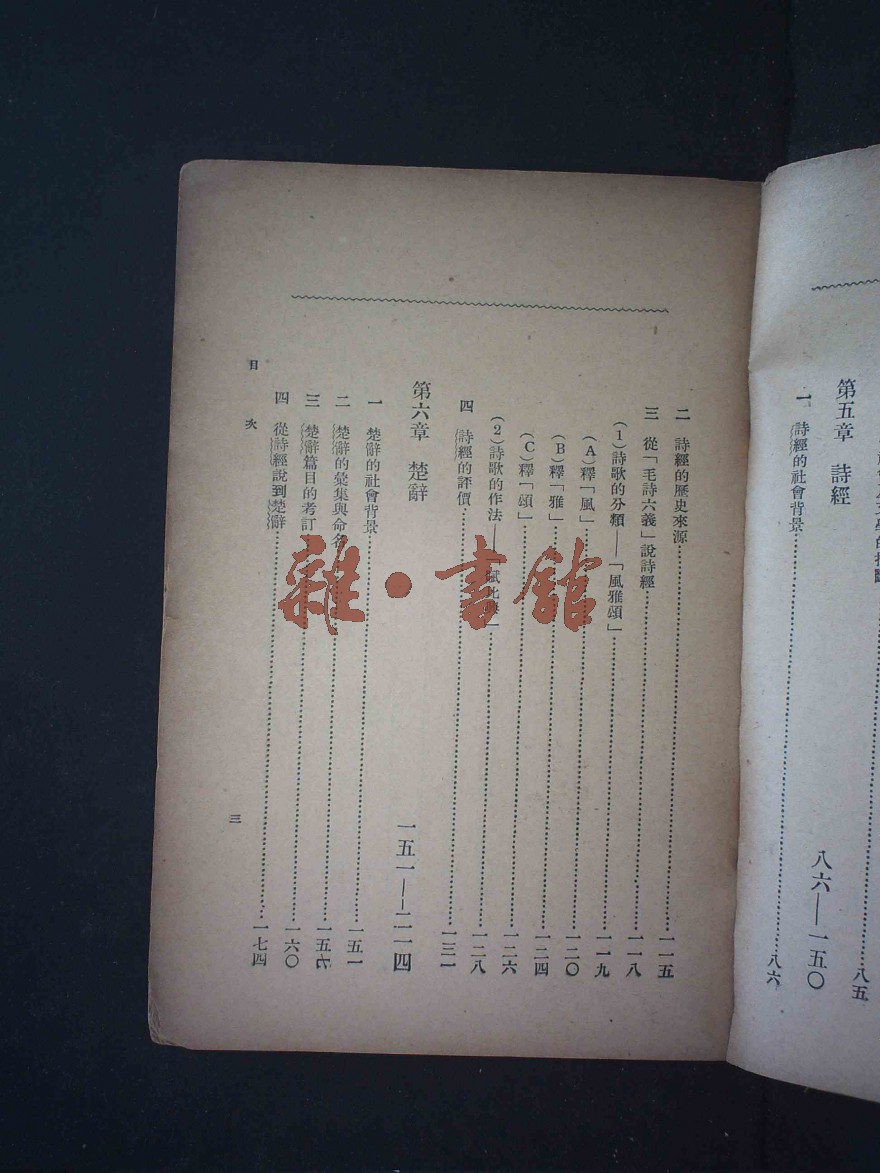 第五章　詩經　八六——一五〇
一　詩經的社會背景……八六
二　詩經的歷史來源……一一五
三　從「毛詩六義」說詩經……一一八
(1)詩歌的分類——「風雅頌」……一一九
(A)釋「風」……一二〇
(B)釋「雅」……一二四
(C)釋「頌」……一二六
(2)詩歌的作法——「賦比興」……一二八
四　詩經的評價……一三一
第六章　楚辭　一五一——二一四
一　楚辭的社會背景……一五一
二　楚辭的彙集與命名……一五六
三　楚辭篇目的考訂……一六〇
四　從詩經說到楚辭……一七四
目次
三
八五
雜·書館